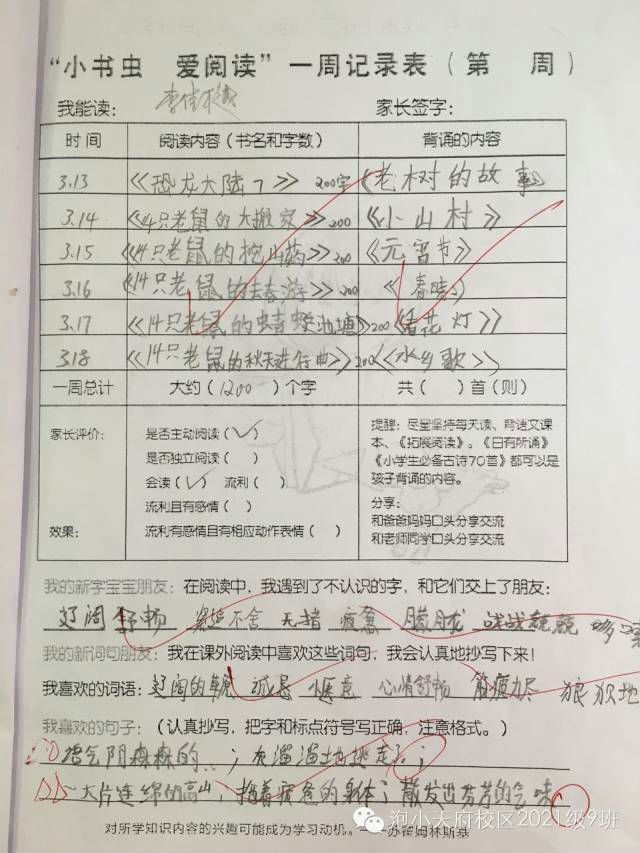 “小书虫 爱阅读”一周记录表（第 周）
我能读： 家长签字：
时间 阅读内容（书名和字数） 背诵的内容
3.13 《恐龙大陆7》 200字 《老树的故事》
3.14 《14只老鼠的大搬家》200 《小山村》
3.15 《14只老鼠的挖山药》200 《元宵节》
3.16 《14只老鼠的去春游》200 《春晓》
3.17 《14只老鼠的蜻蜓池塘》200 《看花灯》
3.18 《14只老鼠的秋天进行曲》200 《水乡歌》
一周总计 大约（1200）个字 共（ ）首（则）
家长评价： 是否主动阅读（√）
是否独立阅读（ ）
会读（√） 流利（ ）
流利且有感情（ ）
效果： 流利有感情且有相应动作表情（ ）
提醒：尽量坚持每天读、背语文课
本、《拓展阅读》。《日有所诵》
《小学生必备古诗70首》都可以是
孩子背诵的内容。
分享：
和爸爸妈妈口头分享交流
和老师同学口头分享交流
我的新字宝宝朋友：在阅读中，我遇到了不认识的字，和它们交上了朋友：
辽阔 舒畅 紧追不舍 无措 疲惫 朦胧 战战兢兢 哆
我的新词句朋友：我在课外阅读中喜欢这些词句，我会认真地抄写下来！
我喜欢的词语：辽阔的 诚恳 惬意 心情舒畅 筋疲力尽 狼狈地
我喜欢的句子：（认真抄写，把字和标点符号写正确，注意格式。）
语气阴森森的…；灰溜溜地逃走了；
一大片连绵的高山；拖着疲惫的身体；散发出芬芳的气味
对所学知识内容的兴趣可能成为学习动机。——苏霍姆林斯基
泡小天府校区2021级9班